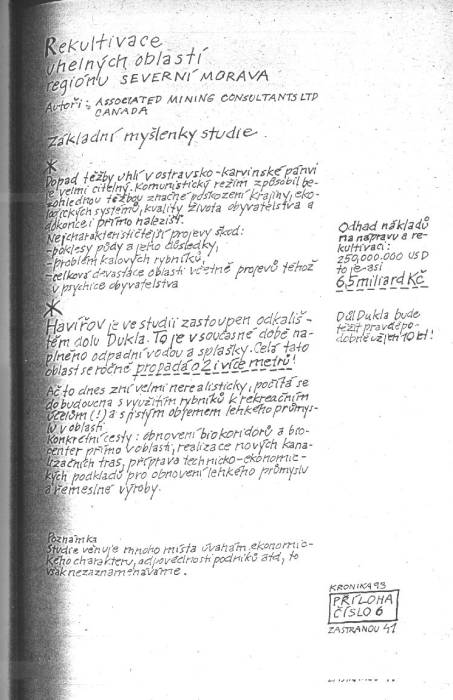 Rekultivace
uhelných oblastí
regionu SEVERNÍ MORAVA
Autoři: ASSOCIATED MINING CONSULTANTS LTD
CANADA
Základní myšlenky studie.
*
Dopad těžby uhlí v ostravsko-karvinské pánvi
je velmi citelný. Komunistický režim způsobil be-
zohlednou těžbou značné poškození krajiny, eko-
logických systémů, kvality života obyvatelstva a
dokonce i přímo nalezišť.
Nejcharakterističtější projevy škod:
-poklesy půdy a jeho důsledky,
-problém kalových rybníků,
-celková devastace oblasti včetně projevů téhož
v psychice obyvatelstva
*
Havířov je ve studii zastoupen odkališ-
těm dolu Dukla. To je v současné době na-
plněno odpadní vodou a splašky. Celá tato
oblast se ročně propadá o 2 i více metrů!
Ač to dnes zní velmi nerealisticky, počítá se
do budoucna s využitím rybníků k rekreačním
účelům (!) a s jistým objemem lehkého průmys-
lu v oblasti.
Konkrétní cesty: obnovení biokoridorů a bio-
center přímo v oblasti, realizace nových kana-
lizačních tras, příprava technicko-ekonomic-
kých podkladů pro obnovení lehkého průmyslu
a řemeslné výroby.
Poznámka
Studie věnuje mnoho místa úvahám ekonomic-
kého charakteru, odpovědnosti podniků atd, to
však nezaznamenáváme.
Odhad nákladů
na nápravu a re-
kultivaci:
250,000.000 USD
to je asi
6,5 miliard Kč
Důl Dukla bude
těžit pravděpo-
dobně už jen 10 let!
KRONIKA 93
PŘÍLOHA
ČÍSLO 6
ZA STRANOU 41